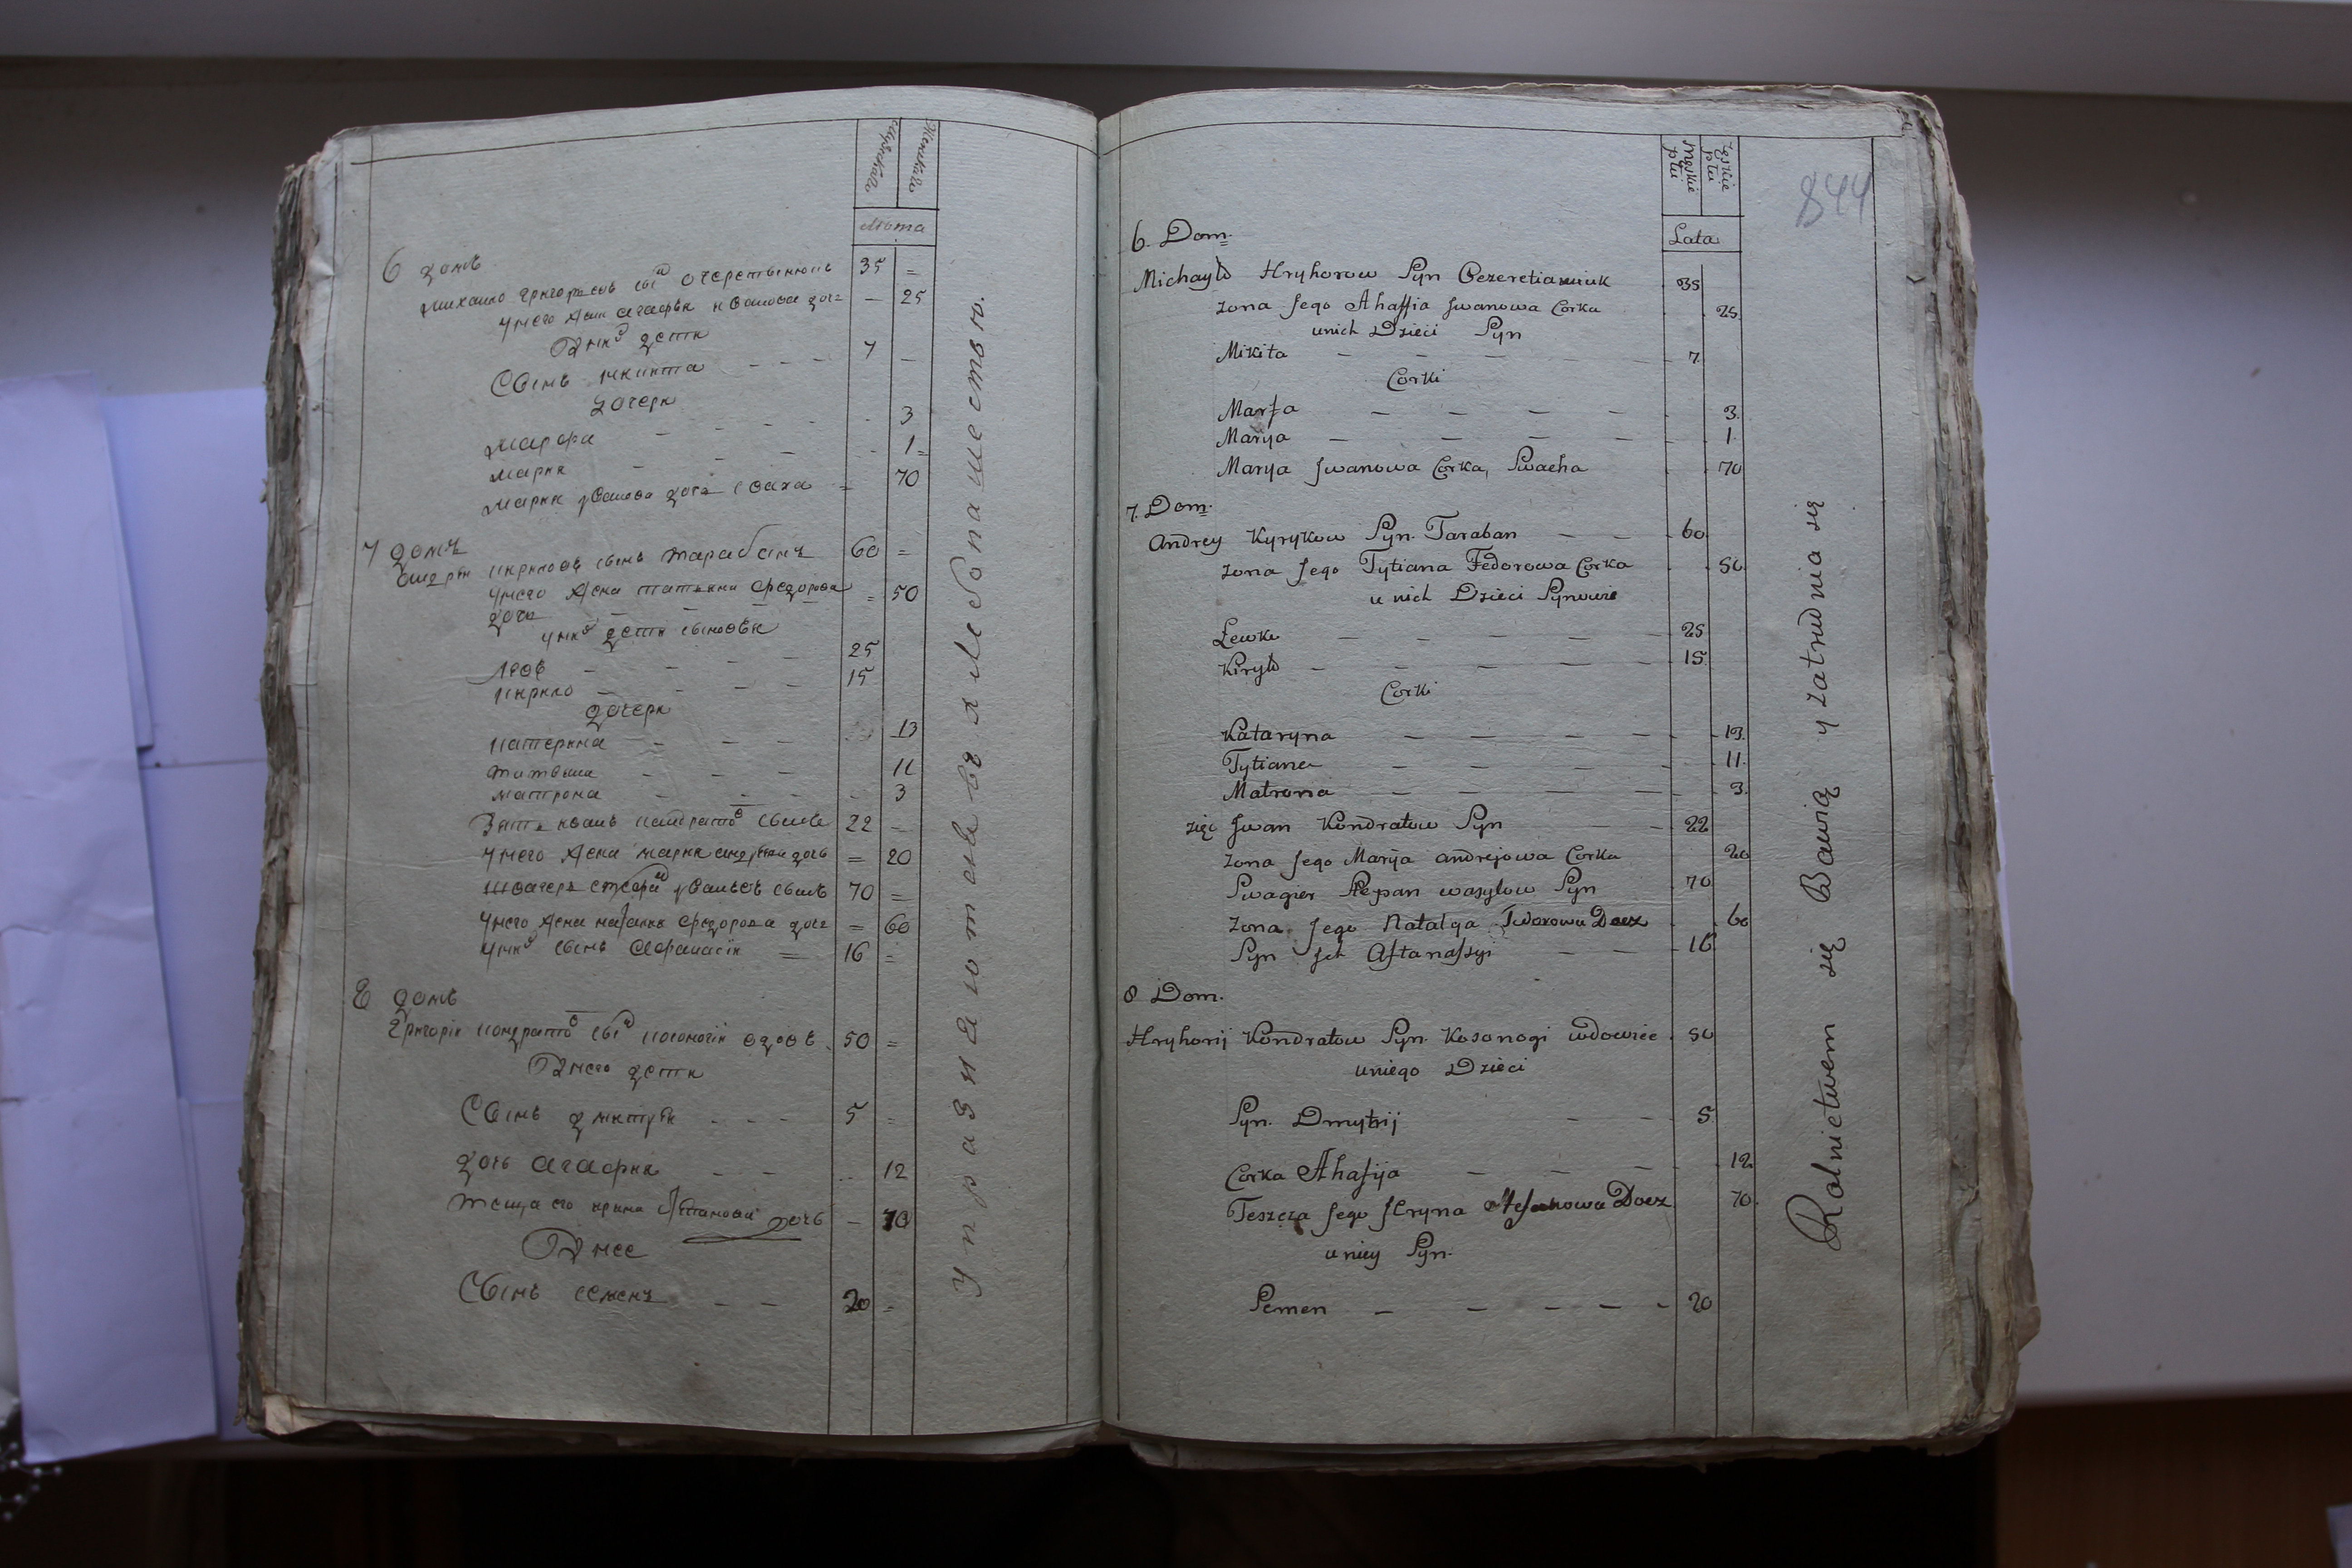 Мужеска
Женска
Лѣта
6 домъ
Михаило Григорьевъ сынъ Очеретянюкъ 35 =
У него жена Агафія Иванова дочь — 25
У нихъ дети
Сынъ Никита — — — 7 —
Дочери
Марфа — — — 3
Мария — — — 1
Мария Иванова дочь сваха = 70
7 домъ
Андрѣй Кириловъ сынъ Тарабанъ 60 =
У него жена Татьяна Федорова = 50
дочь — — — —
У нихъ дети сыновья
Левъ — — — — 25
Кирило — — — — 15
дочери
Катерина — — — 13
Татьяна — — — 11
Матрона — — — 3
Зять Иванъ Кондратовъ сынъ 22 —
У него жена Мария Андрѣева дочь = 20
70 =
У него жена Наталия Федорова дочь = 60
У нихъ сынъ Афанасій = 16 =
8 домъ
Григорій Кондратовъ сынъ Косоногій вдовъ 50 =
У него дети
Сынъ Дмитрій — — — 5 =
Дочь Агафия — — — 12
Теща его Ирина дочь — 70
У нее
Сынъ Семенъ — — 20 =
Упразнаютевъ я хлебопашеством.
Męskie płu
Żęskie płu
844
Lata
6. Dom.
Michayło Hryhorow Syn Oczeretianiuk 35
Zona Jego Ahaffia Jwanowa Corka 25.
unich Dzieci Syn
Mikita — — — — — 7.
Corki
Marfa — — — — 3.
Marya — — — — 1.
Marya Jwanowa Corka, Swacha 70
7. Dom.
Andrey Kyrykow Syn. Taraban — — 60.
Zona Jego Tytiana Fedorowa Corka 50.
u nich Dzieci Synowie
Lewko — — — — — 25
Kiryło — — — — — 15.
Corki
Kataryna — — — — 13.
Tytiana — — — — — 11.
Matrona — — — — 3.
zięć Jwan Kondratow Syn — — 22
Zona Jego Marya Andrejowa Corka 20
Swagier Stepan Wasylow Syn 70
Zona Jego Natalya Fedorowa Docz 60
Syn Jch Aftanassyi — — 16
8 Dom.
Hryhorij Kondratow Syn. Kosonogi wdowiec. 50
uniego Dzieci
Syn. Dmytrij — — 5.
Corka Ahafija — — — 12
Teszcza Jego Jryna Stefanowa Docz 70.
u niey Syn.
Semen — — — — — 20
Rolnictwem się Bawią y zatrudnia się